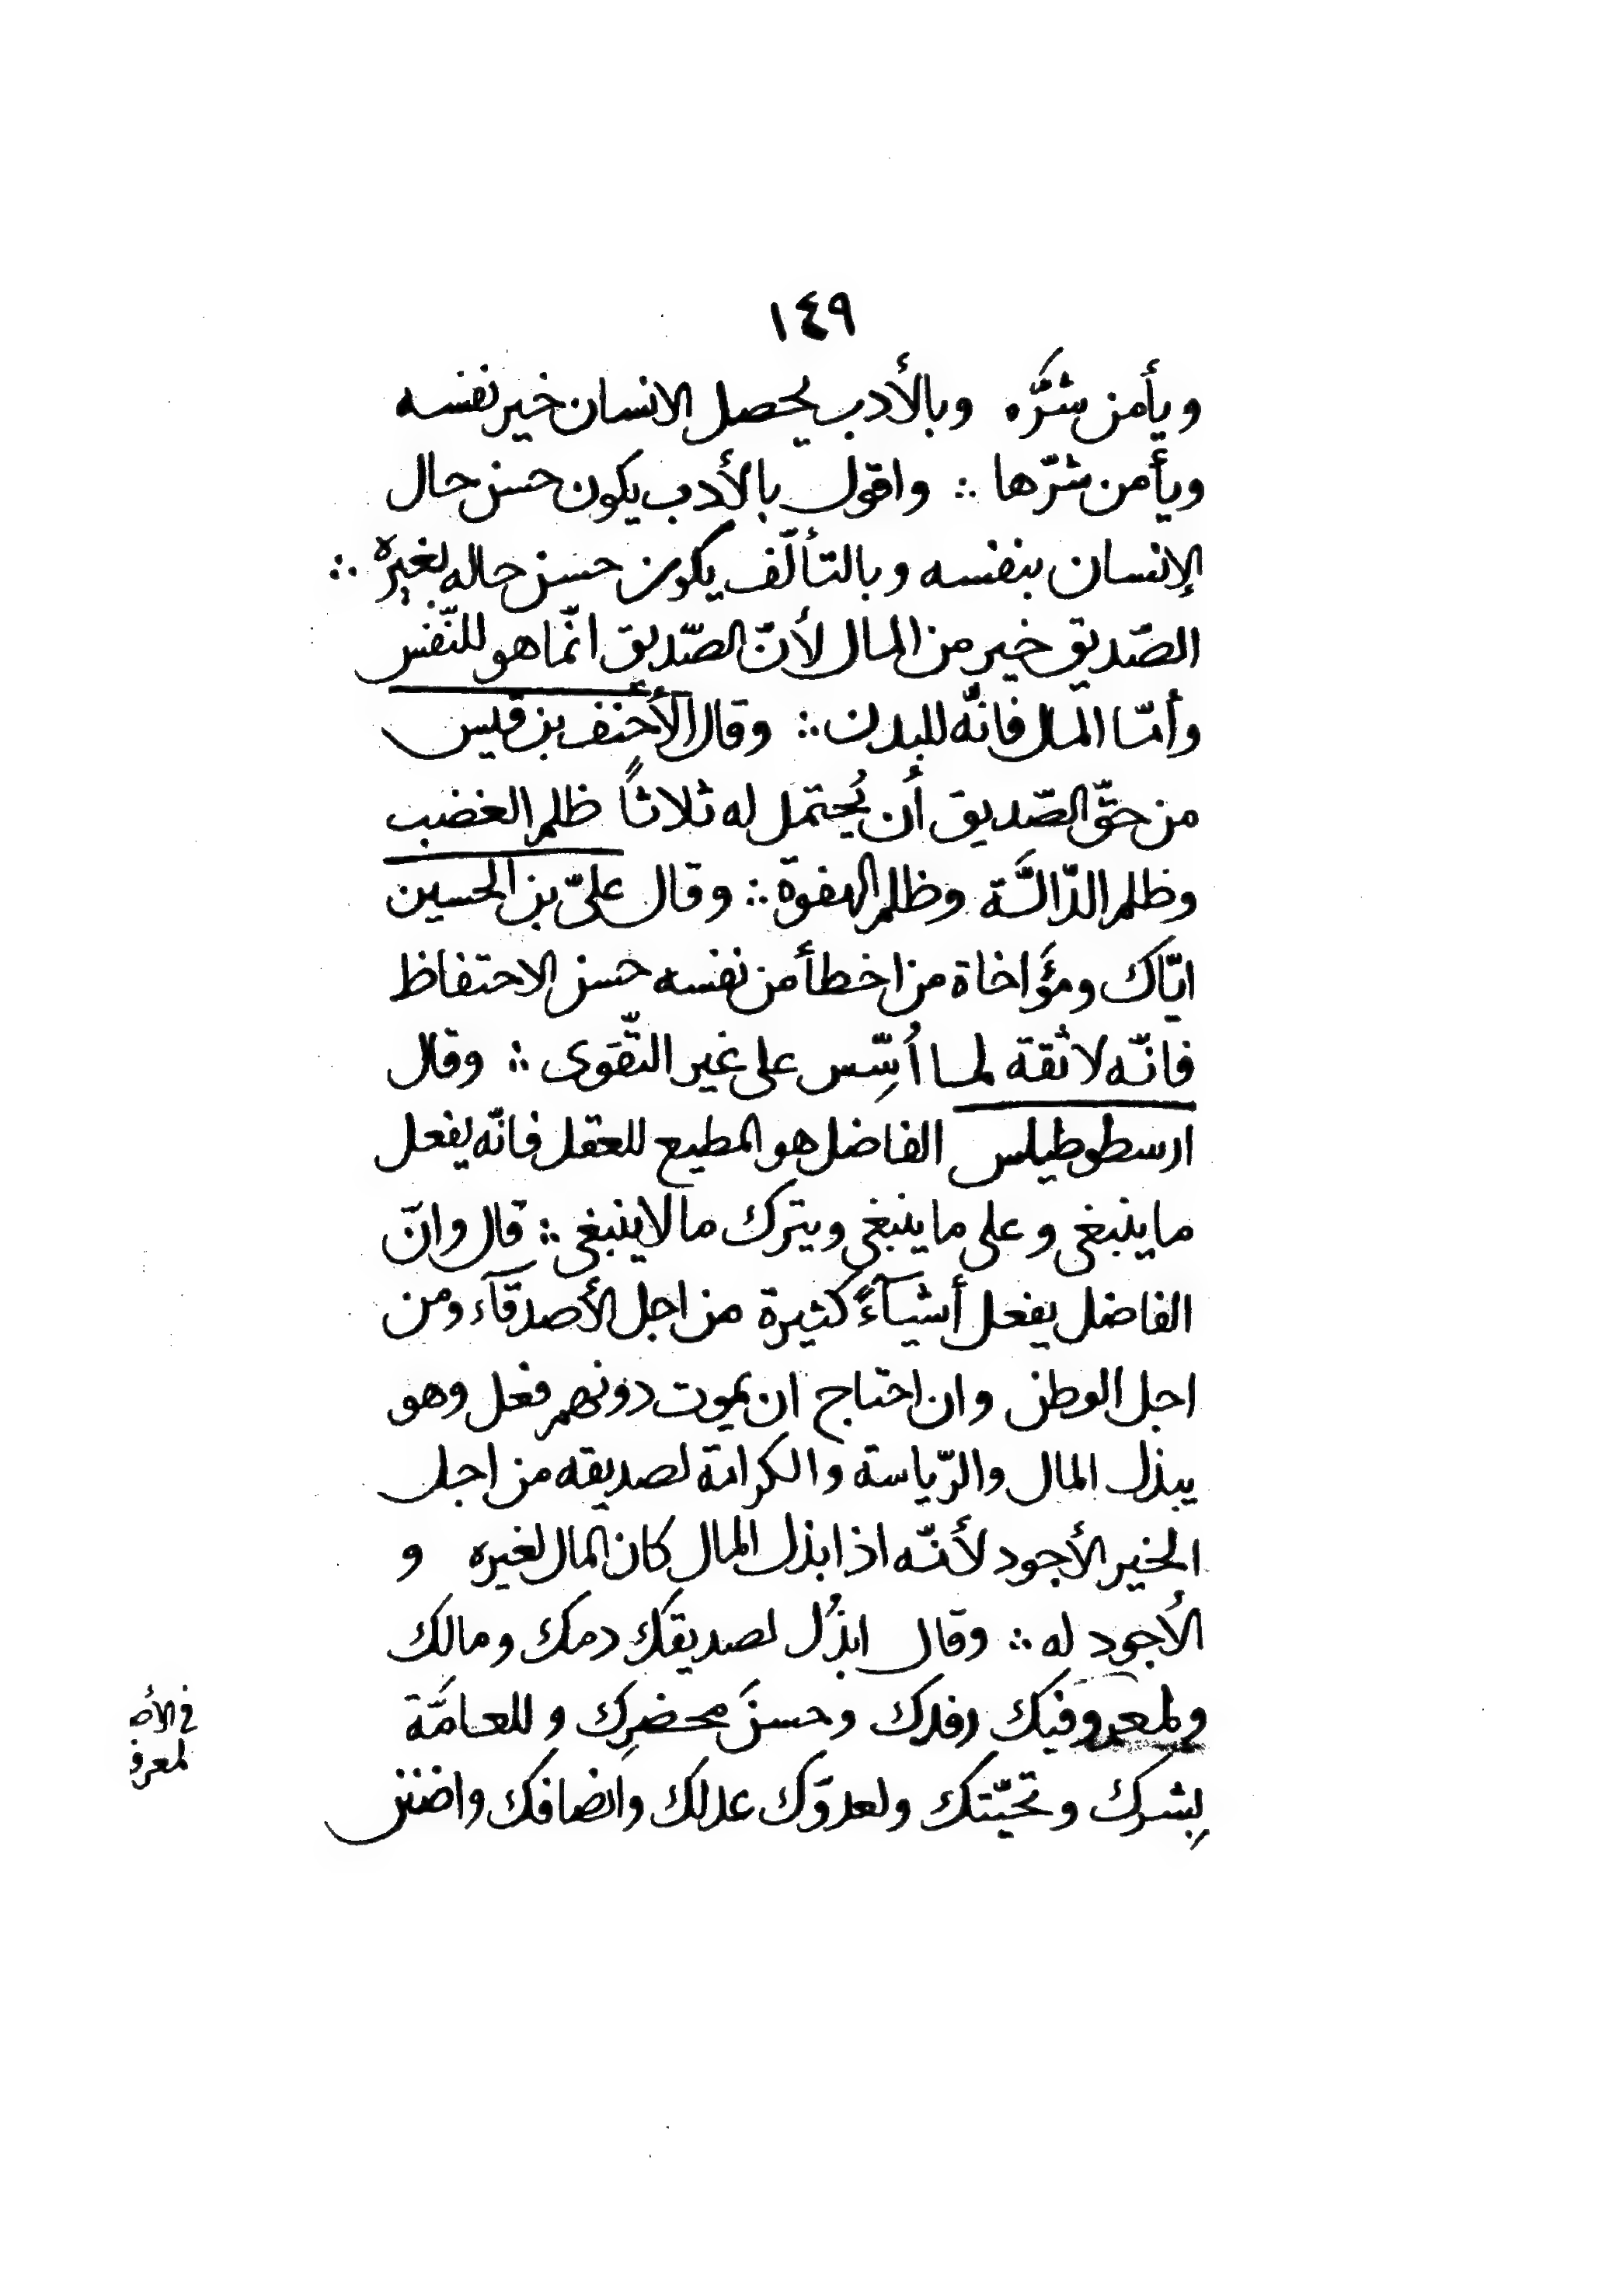 ١٤٩
ويأمن شرَّه وبالأدب يحصل الانسان خير نفسه
ويأمن شرّها ∴ واقول بالأدب يكون حسن حال
الإنسان بنفسه وبالتألّف يكون حسن حاله لغيره ∴
الصّديق خير من المال لأنّ الصّديق انّما هو للنّفس
وأمّا المال فانّه للبدن ∴ وقال الأحنف بن قيس
من حقّ الصّديق أن يُحتمل له ثلاثاً ظلم الغضب
وظلم الدّالّة وظلم الهفوة ∴ وقال علىّ بن الحسين
ايّاك ومؤَاخاة من اخطأ من نفسه حسن الاحتفاظ
فانّه لا ثقة لما اُسِّس على غير التّقوى ∴ وقال
ارسطوطيلس الفاضل هو المطيع للعقل فانّه يفعل
ما ينبغى وعلى ما ينبغى ويترك ما لا ينبغى ∴ قال وانّ
الفاضل يفعل أشيآءً كثيرة من اجل الأصدقآء ومن
اجل الوطن وان احتاج ان يموت دونهم فعل وهو
يبذل المال والرّياسة والكرامة لصديقه من اجل
الخير الأجود لأنّه اذا بذل المال كان المال لغيره و
الأجود له ∴ وقال ابذُل لصديقك دمك ومالك
ولمعروفيك رفدك وحسنَ محضرِك وللعامَّة
بِشرك وتحيّتك ولعدوّك عدلك وانصافك واضنن
فى الأص
لمعرو